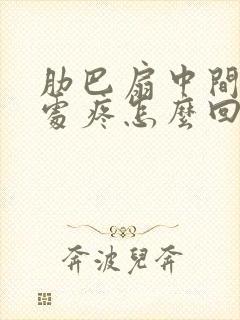 肋巴扇中間
處疼怎麼回
奔波兒奔